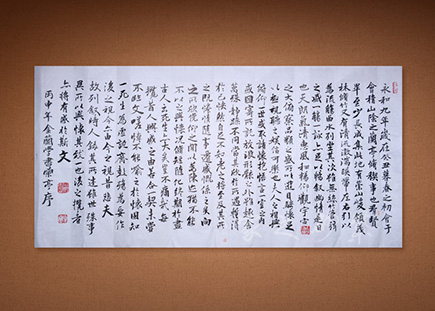 永和九年歲在癸丑暮春之初會于
會稽山陰之蘭亭脩稧事也羣賢
畢至少長咸集此地有崇山峻領茂
林脩竹又有清流激湍暎帶左右引以
為流觴曲水列坐其次雖無絲竹管弦
之盛一觴一詠亦足以暢敘幽情是日
也天朗氣清惠風和暢仰觀宇宙
之大俯察品類之盛所以遊目騁懷足
以極視聽之娛信可樂也夫人之相與
俯仰一世或取諸懷抱悟言一室之內
或因寄所託放浪形骸之外雖趣舍
萬殊靜躁不同當其欣於所遇暫得
於己怏然自足不知老之將至及其所
之既惓情隨事遷感慨係之矣向
之所欣俛仰之間以為陳迹猶不能
不以之興懷況脩短隨化終期於盡
古人云死生亦大矣豈不痛哉每
攬昔人興感之由若合一契未嘗
不臨文嗟悼不能喻之於懷固知
一死生為虛誕齊彭殤為妄作
後之視今亦由今之視昔悲夫
故列敘時人錄其所述雖世殊事
異所以興懷其致一也後之攬者
亦將有感於斯文
丙申年金蘭學書蘭亭序